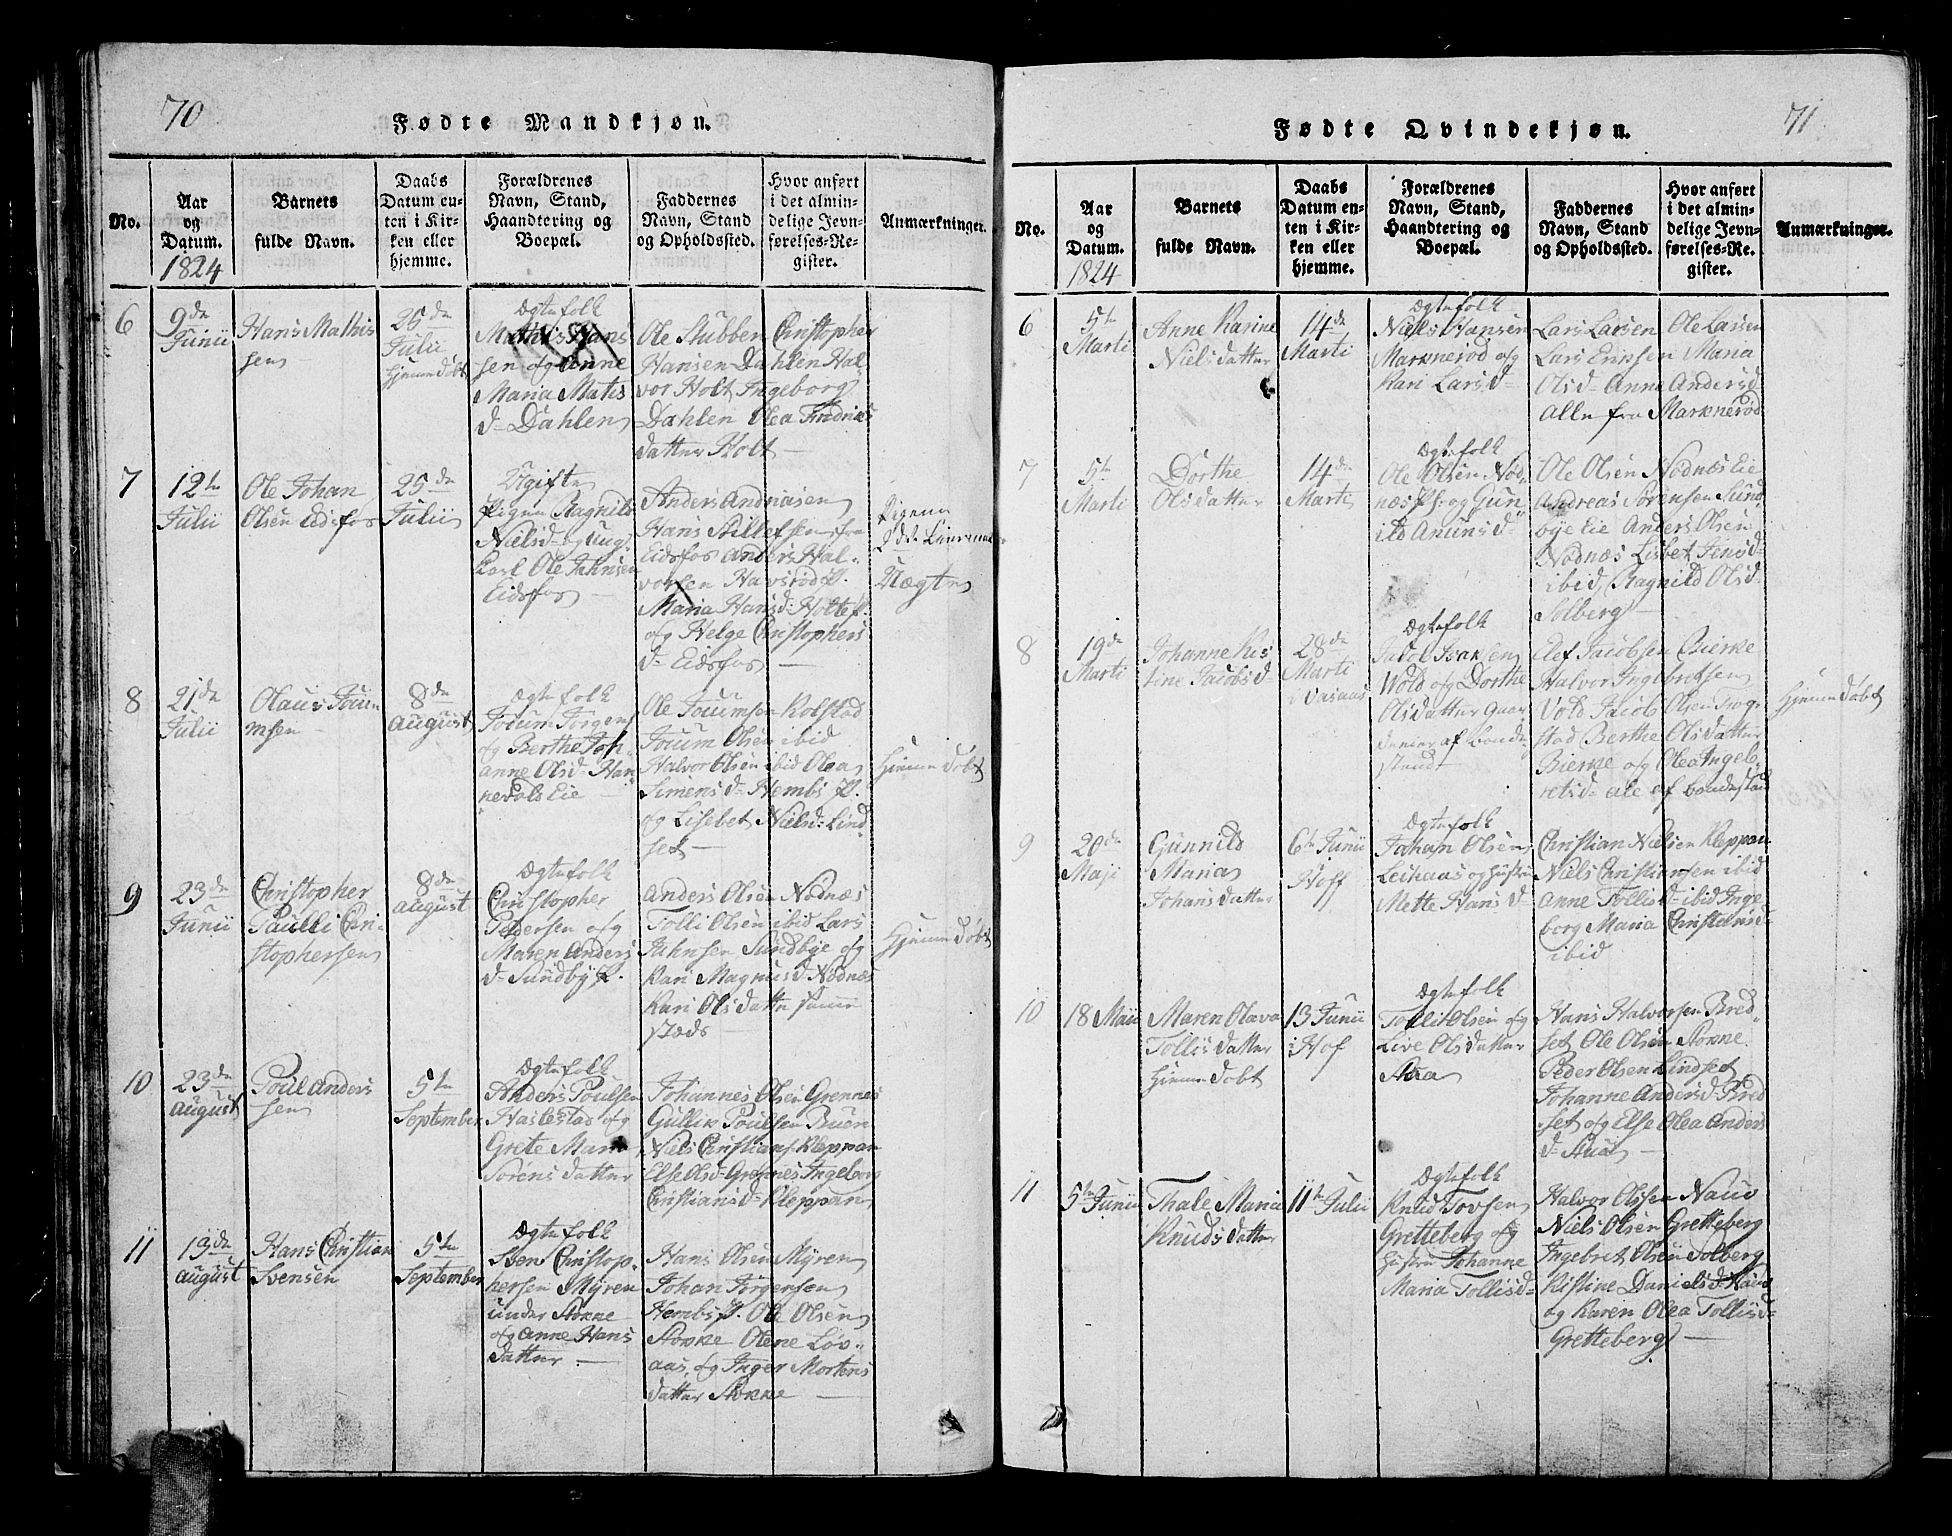 70
Fødte Mandkjøn.
No.
Aar
og
Datum.
1824
Barnets
fulde Navn.
Daabs
Datum en-
ten i Kir-
ken eller
hjemme.
Forældrenes
Navn, Stand,
Haandtering og
Boepæl.
Faddernes
Navn, Stand
og Opholdssted.
Hvor anført
i det almin-
delige Jevn-
førelses-Re-
gister.
Anmærkninger.
6
9de
Junii
Hans Mathis
sen
25de
Julii
Hjemmedøbt
Ægtefolk
Mathis Hans
sen og Anne
Maria Matis
d- Dahlen
Ole Stubben Christopher
Hansen Dahlen Hal-
vor Holt Ingeborg
Dahlen Olea
datter Holt
7
12te
Julii
Ole Johan
Olsen Eidsfos
25de
Julii
Ugifte
Pigen Ragnild
Nielsd- og ung-
karl Ole Jahnsen
Eidsfos
Anders Andreasen
Hans
Eidsfos Anders Hal-
vorsen Havsrød
Maria Hansd: Holte
og Helge Christophers
d- Eidsfos
Pigens
2det
Nægtes
8
21de
Julii
Olaus Jocum
msen
8de
August
Ægtefolk
Jocum Jørgens
og Berthe Joh-
anne Olsd- Han
nevols Eie
Ole Jocumsen Kolstad
Jocum Olsen ibid
Halvor Olsen ibid Olea
Simensd- Hembs
og Lisebet Nielsd: Lind
set
Hjemmedøbt
9
23de
Junii
Christopher
Paulli Chri-
stophersen
8de
August
Ægtefolk
Christopher
Pedersen og
Maren Anders
d- Sundby
Anders Olsen Nodnæs
Tolli Olsen ibid Lars
Jahnsen Sundbye og
Kari Magnusd- Nodnæs
Kari Olsdatter samme
steds
Hjemmedøbt
10
23de
August
Poul Anders
sen
5te
September
Ægtefolk
Anders Poulsen
Haslestad og
Grete Marie
Sørens datter
Johannes Olsen Grennes
Gullik Poulsen Buen
Niels Christians: Kleppan
Else Olsd- Grennes Ingeborg
Christiansd- Kleppan
11
13de
August
Hans Christian
Svensen
5te
September
Ægtefolk
Sven Christop-
hersen Myren
under Stokke
og Anne Hans
datter
Hans Olsen Myren
Johan Jørgensen
Hembs Ole Olsen
Stokke Olene Løv-
aas, og Inger Mortens
datter Stokke
71
Fødte Qvindekjøn.
No.
Aar
og
Datum.
1824
Barnets
fulde Navn.
Daabs
Datum en-
ten i Kir-
ken eller
hjemme.
Forældrenes
Navn, Stand,
Haandtering og
Boepæl.
Faddernes
Navn, Stand
og Opholdssted.
Hvor anført
i det almin-
delige Jevn-
førelses-Re-
gister.
Anmærkninger.
6
5te
Marti
Anne Karine
Nielsdatter
14de
Marti
Ægtefolk
Niels Hansen
Marknerød og
Kari Larsd-
Lars Larsen Ole Larsen
Lars Erinsen Maria
Olsd- Anne Andersd
Alle fra Marknerød
7
5te
Marti
Dorthe
Olsdatter
14de
Marti
Ægtefolk
Ole Olsen Nod-
næs og Gun-
ild Amunsd-
Ole Olsen Nodnæs Eie
Andreas Sørensen Sund
bye Eie Anders Olsen
Nodnæs Lisbet Jensd-
ibid, Ragnild Olsd-
Solberg
8
19de
Marti
Johanne Kis
tine Jacobsd-
28de
Marti
i Vasaas
Ægtefolk
Jacob Isaksen
Wold og Dorthe
Olsdatter Gaar
deneier af bonde
stand
Elef Jacobsen Bierke
Halvor Ingebretsen
Vold Jacob Olsen Trog-
stad Berthe Olsdatter
Bierke og Olea Ingeb-
retsd- ale af bondestand
Hjemmedøbt
9
20de
Maji
Gunnild
Maria
Johansdatter
6te Junii
Hoff
Ægtefolk
Johan Olsen
Leikaas og Hustru
Mette Hansd-
Christian Nielsen Kleppan
Niels Christiansen ibid
Anne Tollisd- ibid Inge
borg Maria Christiansd-
ibid
10
18 Maii
Maren Olava
Tollis datter
Hjemmedøbt
13 Junii
i Hof
Ægtefolk
Tolli Olsen og
Live Olsdatter
Aaa
Hans Halvorsen Bred-
set Ole Olsen Stokke
Peder Olsen Lindset
Johanne Andersd- Bred
set og Else Olea Anders
d- Aaa
11
5te Junii
Thale Maria
Knudsdatter
11te Julii
Ægtefolk
Knud Tovsen
Gretteberg og
Hustru Johanne
Maria Tollisd-
Halvor Olssen Nauv
Niels Olsen Gretteberg
Ingebret Olsen Solberg
Kistine Danielsd- Nauv
og Karen Olea Tollisd-
Gretteberg